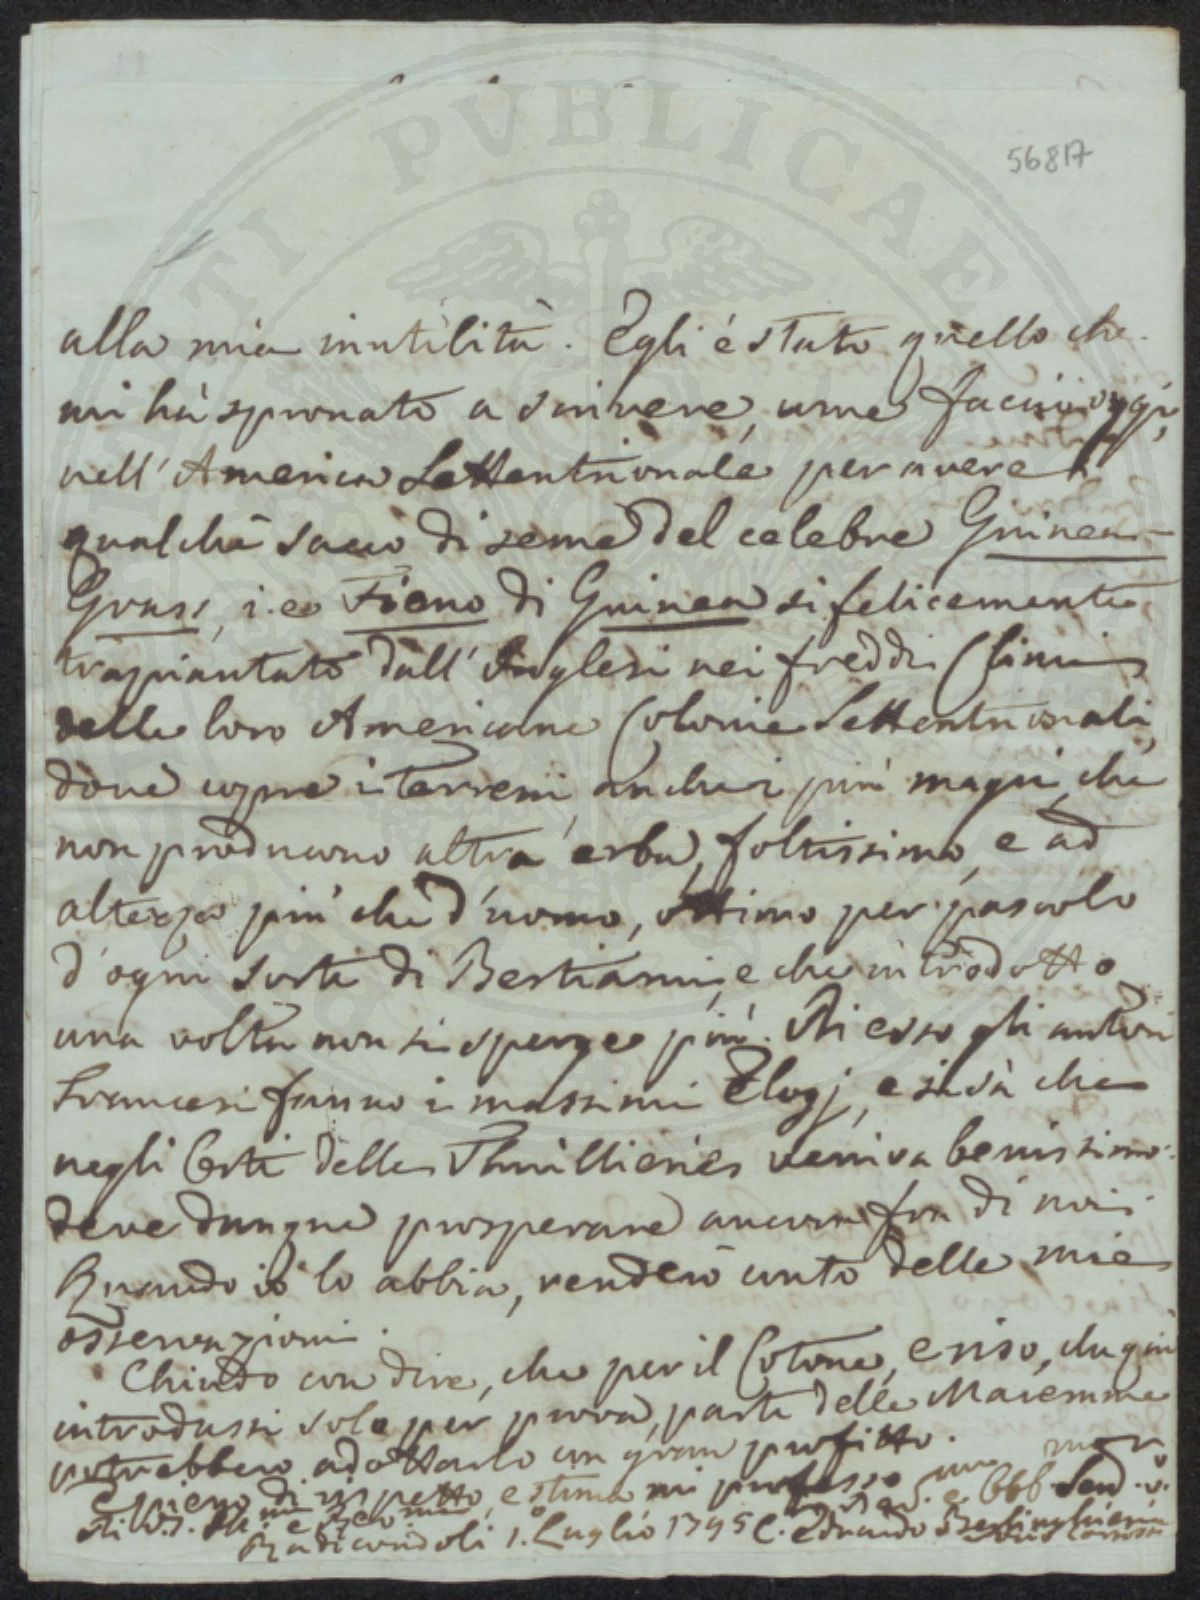 56817
alla mia inutilità. Egli é stato quello che
mi hà spronato a scrivere, come faccio oggi,
nell' America Settentrionale per avere
qualche sacco di seme del celebre Guinea-
Grass, i.e. Fieno di Guinea si felicemente
trapiantato dall' Inglesi nei freddi Climi
delle loro Americane Colonie Settentrionali,
dove copre i Terreni anche i più magri, che
non producono altra erba, foltissimo, e ad
altezza più che d'uomo, ottimo per pascolo
d'ogni sorte di Bestiami, e che introdotto
una volta non si sperge più. Di esso gli autori
Francesi fanno i massimi Elogj, e si sà che
negli Orti delle Thuillieries veniva benissimo:
deve dunque prosperare ancora fra di noi.
Quando io lo abbia, renderò conto delle mie
osservazioni.
Chiudo con dire, che per il Cotone, e riso, che già
introdussi solo per prova, parte delle Maremme
potrebbero adottarlo con gran profitto.
E pieno di rispetto, e stima mi professo
Di V.S. Ill.ma e Rev.ma
Radicondoli 1.o Luglio 1795 C. Eduardo Berlinghieri